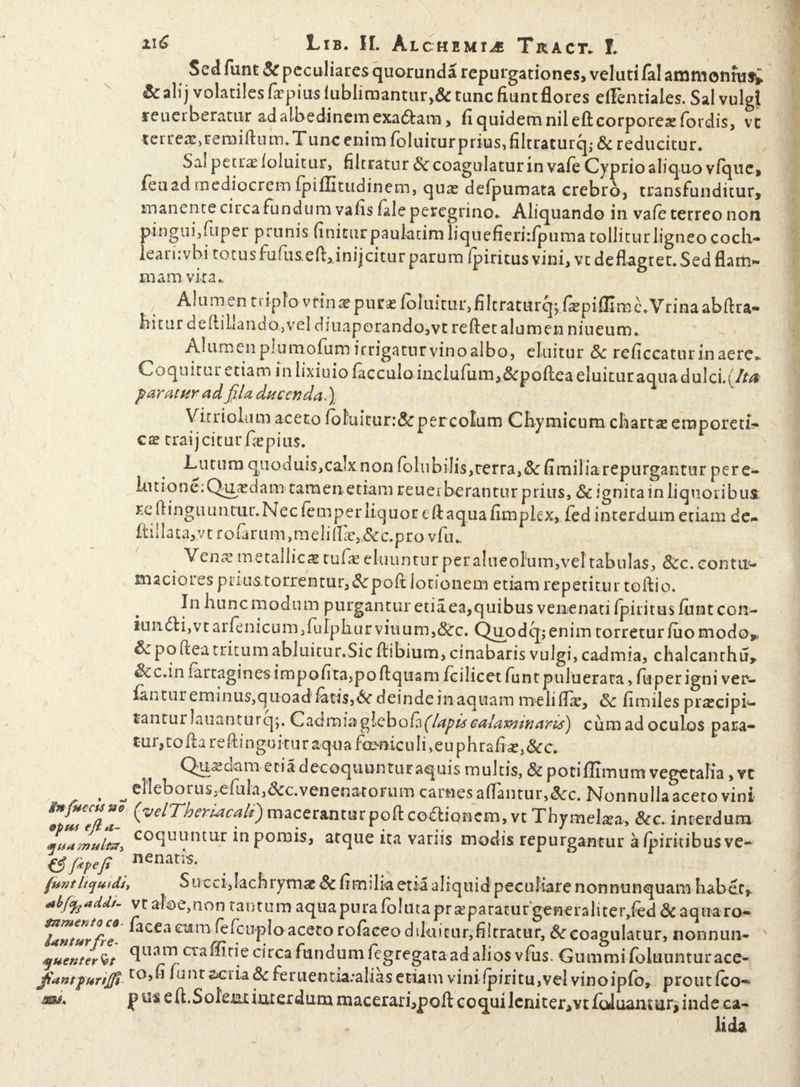 216 LIB. II. ALCHEMIÆ TRACT. I.
Sed sunt & peculiares quorundã repurgationes, veluti sal ammonius,
& alij volatiles sæpius sublimantur, & tunc fiunt flores essentiales. Sal vulgi
reuerberatur ad albedinem exactam, si quidem nil est corporeæ sordis, vt
terreæ, remistum. Tunc enim soluitur prius, filtraturq; & reducitur.
Sal petræ soluitur, filtratur & coagulatur in vase Cyprio aliquo vsque,
seu ad mediocrem spissitudinem, quæ despumata crebrò, transfunditur,
manente circa fundum vasis sale peregrino. Aliquando in vase terreo non
pingui, super prunis sinitur paulatim liquefieri: spuma tollitur ligneo coch-
leari: vbi totus fusus est, inijcitur parum spiritus vini, vt deflagret. Sed flam-
mam vita.
Alumen triplo vrinæ puræ soluitur, filtraturq; sæpissimè. Vrina abstra-
hitur destillando, vel diuaporando, vt restet alumen niueum.
Alumen plumosum irrigatur vino albo, eluitur & resiccatur in aere.
Coquitur etiam in lixiuio sacculo inclusum, & postea eluitur aqua dulci. (Ita
paratur ad fila ducenda.)
Vitriolum aceto soluitur: & per colum Chymicum chartæ emporeti-
cæ traijcitur sæpius.
Lutum quoduis, calx non solubilis, terra, & similia repurgantur per e-
lutionẽ: Quædam tamen etiam reuerberantur prius, & ignita in liquoribus
restinguuntur. Nec semper liquor est aqua simplex, sed interdum etiam de-
stillata, vt rosarum, melissæ, &c. pro vsu.
Venæ metallicæ tusæ eluuntur per alueolum, vel tabulas, &c. contu-
maciores prius torrentur, & post lotionem etiam repetitur tostio.
In hunc modum purgantur etiã ea, quibus venenati spiritus sunt con-
iuncti, vt arsenicum, sulphur viuum, &c. Quodq; enim torretur suo modo,
& postea tritum abluitur. Sic stibium, cinabaris vulgi, cadmia, chalcanthũ,
&c. in sartagines imposita, postquam scilicet sunt puluerata, super igni ver-
santur eminus, quoad satis, & deinde in aquam melissæ, & similes præcipi-
tantur lauanturq;. Cadmia glebosa (lapis calaminaris) cùm ad oculos para-
tur, tosta restinguitur aqua fœniculi, euphrasiæ, &c.
Quædam etiã decoquuntur aquis multis, & potissimum vegetalia, vt
elleborus, esula, &c. venenatorum carnes assantur, &c. Nonnulla aceto vini
(vel Theriacali) macerantur post coctionem, vt Thymelæa, &c. interdum
coquuntur in pomis, atque ita variis modis repurgantur à spiritibus ve-
nenatis.
Succi, lachrymæ & similia etiã aliquid peculiare nonnunquam habẽt,
vt aloe, non tantum aqua pura soluta præparatur generaliter, sed & aqua ro-
sacea cum sescuplo aceto rosaceo diluitur, filtratur, & coagulatur, nonnun-
quam crassitie circa fundum segregata ad alios vsus. Gummi soluuntur ace-
to, si sunt acria & feruentia: aliàs etiam vini spiritu, vel vino ipso, prout sco-
pus est. Solent interdum macerari, post coqui leniter, vt soluantur, inde ca-
lida
In succis nõ
opus est a-
qua multa,
& sæpe si
sunt liquidi,
absq; addi-
tamento co-
lantur fre-
quenter vt
fiant puriss-
mi.